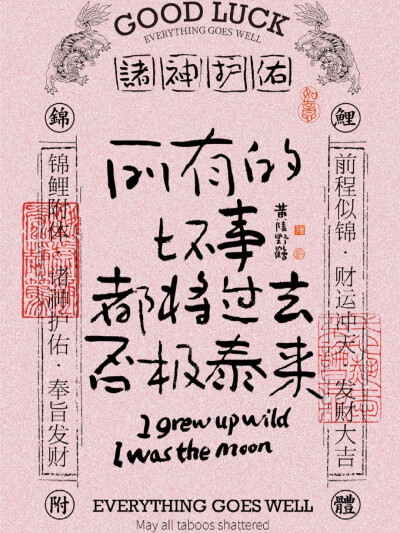 GOOD LUCK
EVERYTHING GOES WELL
諸神护佑
如意
錦
鯉
锦鲤附体·堵神护佑·奉旨发财
前程似锦·财运冲天·发财大吉
所有的
坏事
黄陵野鹤
都将过去
否极泰来
I grew up wild
I was the moon
附
體
EVERYTHING GOES WELL
May all taboos shattered